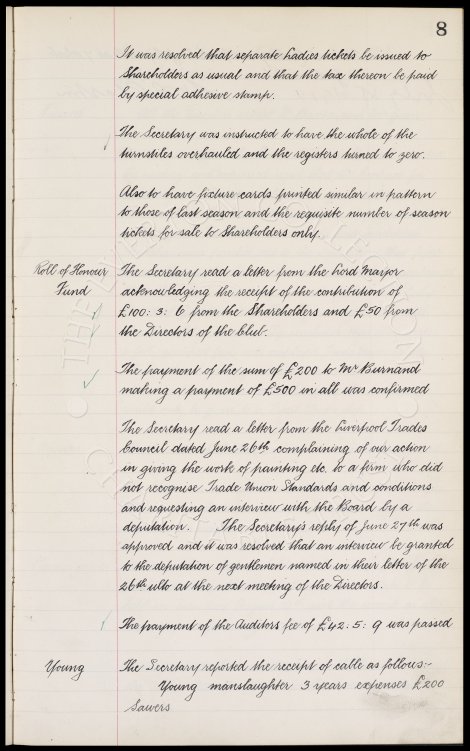 8
It was resolved that separate Ladies tickets be issued to
Shareholders as usual and that the tax thereon be paid
by special adhesive stamp.
The Secretary was instructed to have the whole of the
turnstiles overhauled and the registers turned to zero.
Also to have fixture cards printed similar in pattern
to those of last season and the requisite number of season
tickets for sale to Shareholders only.
Roll of Honour The Secretary read a letter from the Lord Mayor
Fund acknowledging the receipt of the contribution of
£100: 3: 6 from the Shareholders and £50 from
the Directors of the club.
The payment of the sum of £200 to Mr Burnand
making a payment of £500 in all was confirmed
The Secretary read a letter from the Liverpool Trades
Council dated June 26th complaining of our action
in giving the work of painting etc. to a firm who did
not recognise Trade Union Standards and conditions
and requesting an interview with the Board by a
deputation. The Secretary's reply of June 27th was
approved and it was resolved that an interview be granted
to the deputation of gentlemen named in their letter of the
26th ulto at the next meeting of the Directors.
The payment of the Auditors fee of £42: 5: 9 was passed
Young The Secretary reported the receipt of cable as follows:-
Young manslaughter 3 years expenses £200
Sawers